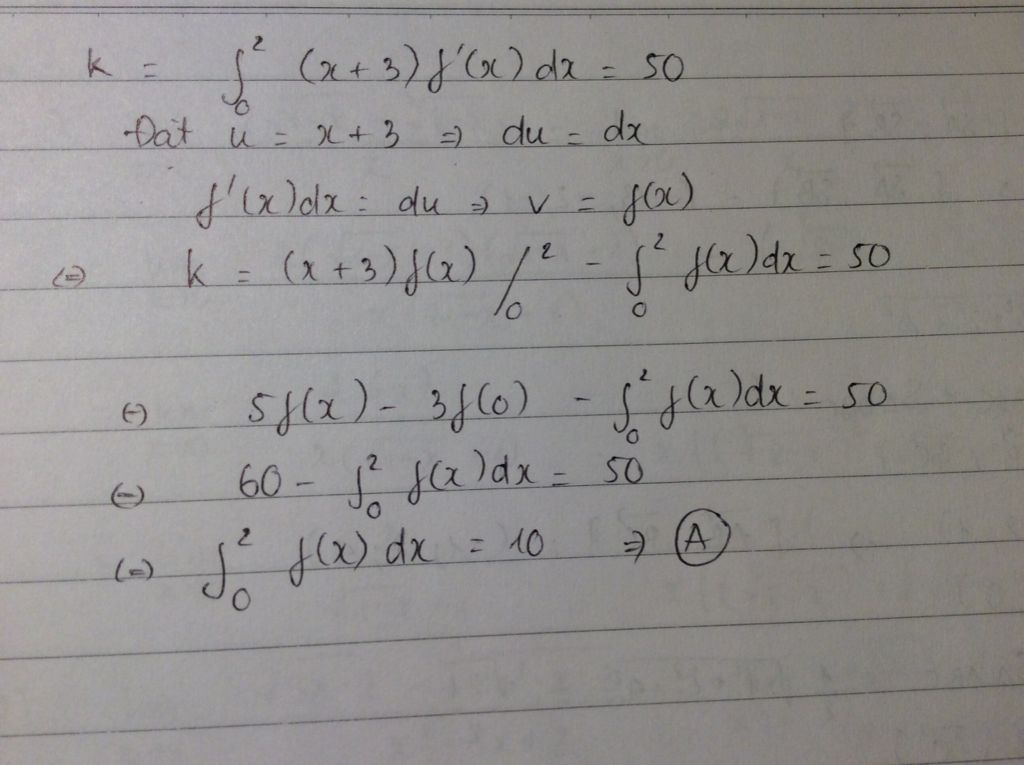 k = ∫₀² (x+3) f'(x) dx = 50
Đặt u = x + 3 ⇒ du = dx
f'(x)dx = du ⇒ v = f(x)
(=) k = (x+3) f(x) /₀² - ∫₀² f(x)dx = 50
(=) 5f(x) - 3f(0) - ∫₀² f(x)dx = 50
(=) 60 - ∫₀² f(x)dx = 50
(=) ∫₀² f(x) dx = 10 ⇒ A